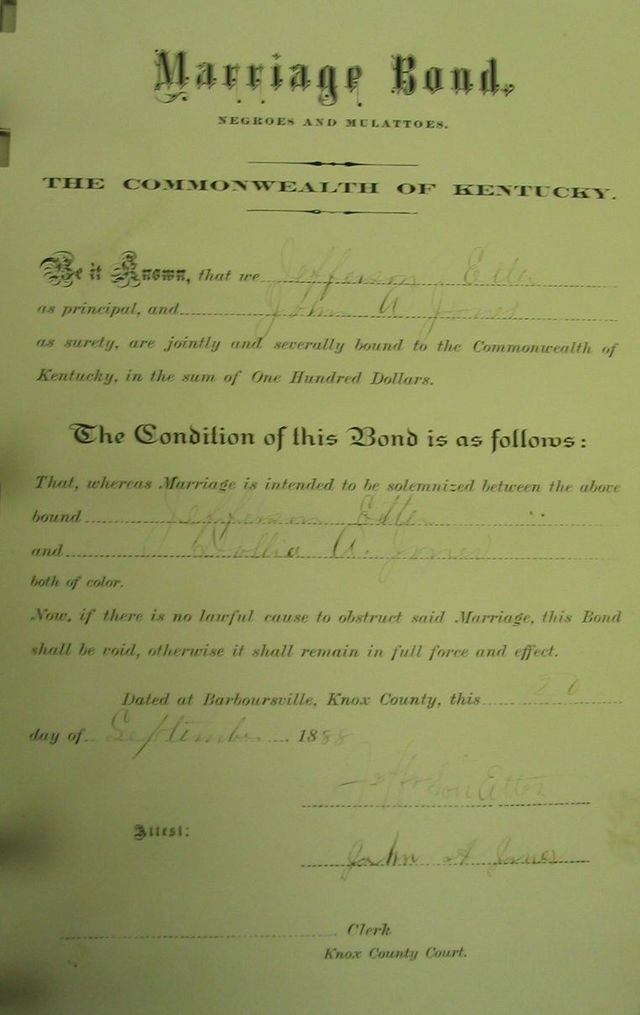 Marriage Bond,
NEGROES AND MULATTOES.
THE COMMONWEALTH OF KENTUCKY.
Be it Known, that we Jefferson
as principal, and John A Jones
as surety, are jointly and severally bound to the Commonwealth of
Kentucky, in the sum of One Hundred Dollars.
The Condition of this Bond is as follows:
That, whereas Marriage is intended to be solemnized between the above
bound Jefferson
and A. Jones
both of color.
Now, if there is no lawful cause to obstruct said Marriage, this Bond
shall be void, otherwise it shall remain in full force and effect.
Dated at Barboursville, Knox County, this
day of September 1888
Attest:
John A Jones
Clerk
Knox County Court.